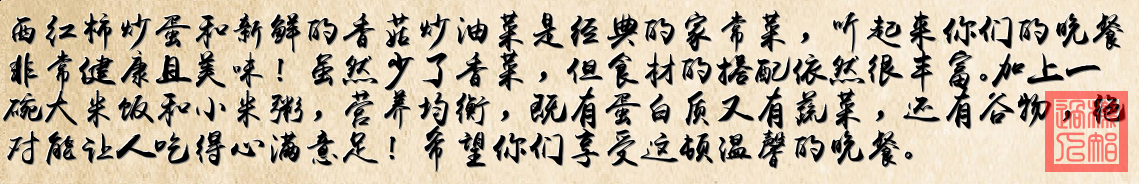 西红柿炒蛋和新鲜的香菇炒油菜是经典的家常菜，听起来你们的晚餐
非常健康且美味！虽然少了香菜，但食材的搭配依然很丰富。加上一
碗大米饭和小米粥，营养均衡，既有蛋白质又有蔬菜，还有谷物，绝
对能让人吃得心满意足！希望你们享受这顿温馨的晚餐。